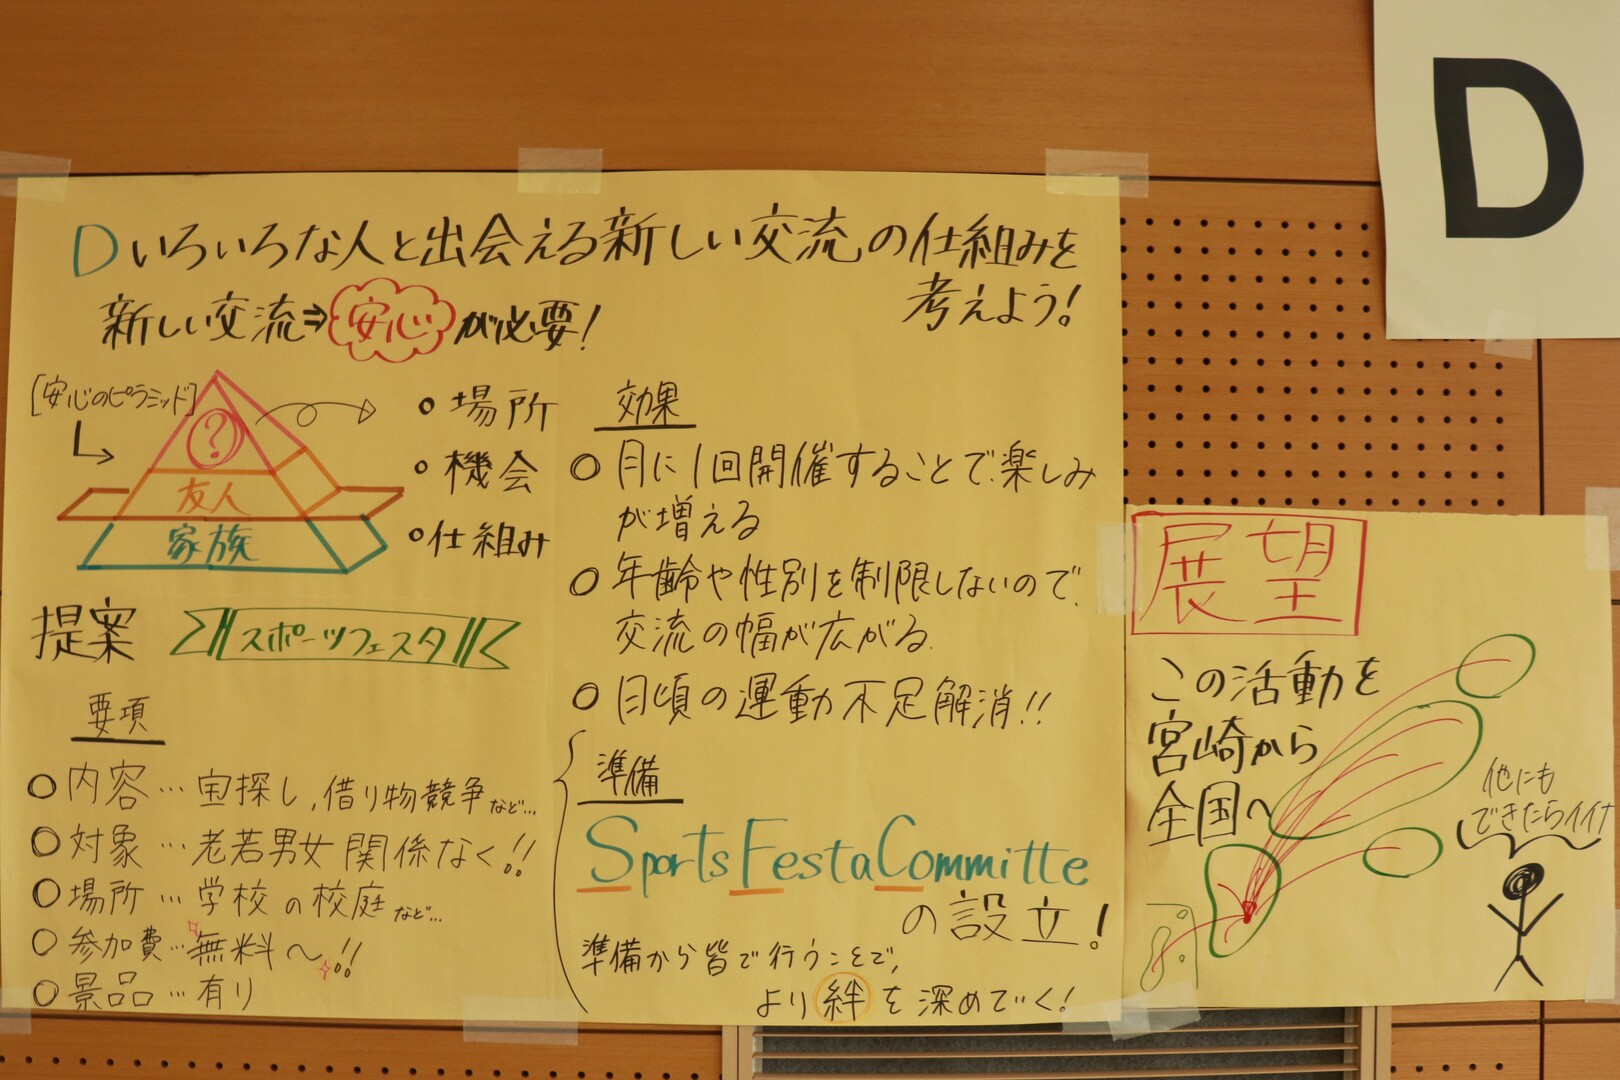 D
D いろいろな人と出会える新しい交流の仕組みを
考えよう!
新しい交流⇒安心が必要!
[安心のピラミッド]
?
友人
家族
・場所
・機会
・仕組み
提案
スポーツフェスタ
要項
○内容…宝探し,借り物競争など…
○対象…老若男女関係なく!!
○場所…学校の校庭など…
○参加費…無料〜!!
○景品…有り
効果
○月に1回開催することで楽しみ
が増える
○年齢や性別を制限しないので、
交流の幅が広がる.
○日頃の運動不足解消!!
準備
Sports Festa Committe
の設立!
準備から皆で行うことで,
より絆を深めていく!
展望
この活動を
宮崎から
全国へ
他にも
できたらイイナ